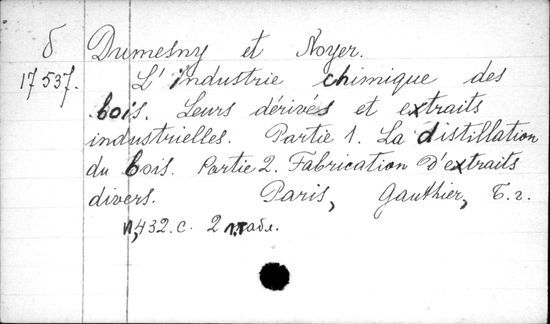 б Dumesny et Noyer.
17537. L'industrie chimique des
bois. Leurs dérivés et extraits
industrielles. Partie 1. La distillation
du bois. Partie 2. Fabrication d'extraits
divers. Paris, Gauthier, Б.г.
432.с. 2 табл.